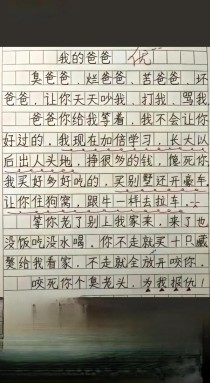 我的爸爸 优
臭爸爸，烂爸爸，苦爸爸，坏
爸爸，让你天天吵我、打我、骂我
爸爸你给我等着，我不会让你
好过的，我现在加倍学习，长大以
后出人头地，挣很多的钱，馋死你
我买好多好吃的，买别墅还开豪车
让你住狗窝，跟牛一样去拉车，
等你老了别上我家来，来了也
没饭吃没水喝，你不走就买十只藏
獒给我看家，不走就全放开咬你，
咬死你个臭老头，为我报仇！